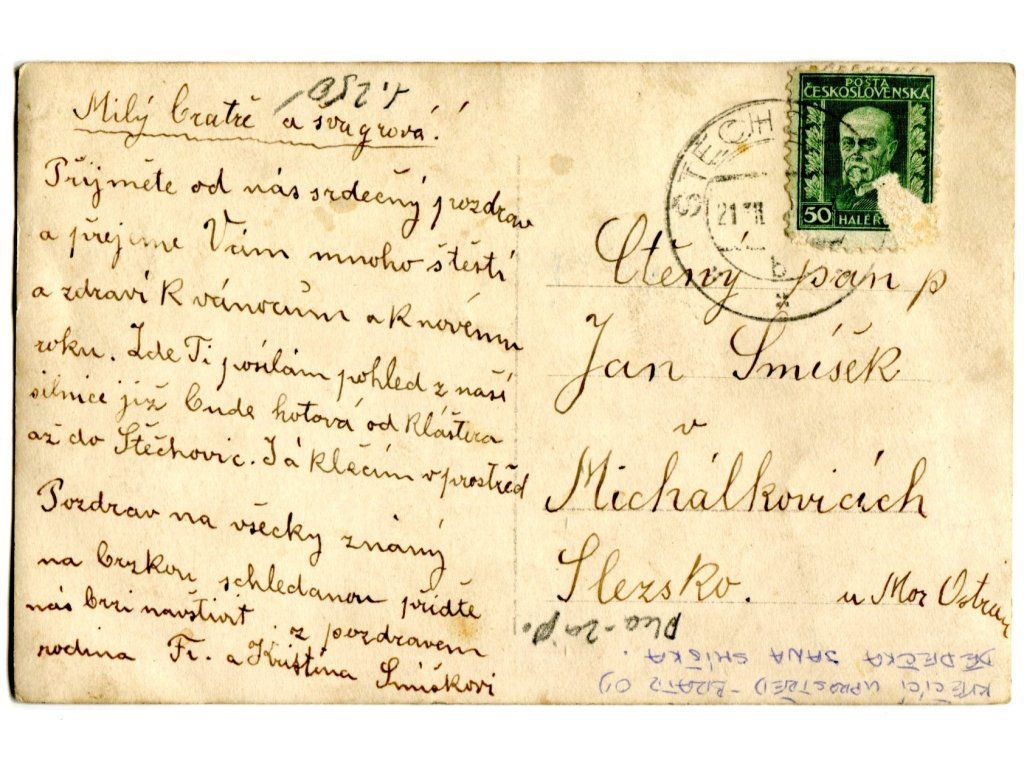 Milý bratře a svagrová!
Přijměte od nás srdečný pozdrav
a přejeme Vám mnoho štěstí
a zdraví k vánocům a k novému
roku. Zde Ti posílám pohled z naší
silnice již bude hotová od Kláštera
až do Štěchovic. Já klečím v prostřed
Pozdrav na všecky známý
na brzkou schledanou přidte
nás brzi navštivit. z pozdravem
rodina Fr. a Kristina Smíškovi
POŠTA
ČESKOSLOVENSKÁ
50 HALÉŘ
ŠTĚCH
21 XII
b
Ctěný pan p
Jan Smíšek
v
Michálkovicích
Slezsko. u Mor Ostravi
KLEČÍCÍ UPROSTŘED - BRATR OJ
DĚDEČKA JANA SMÍŠKA.